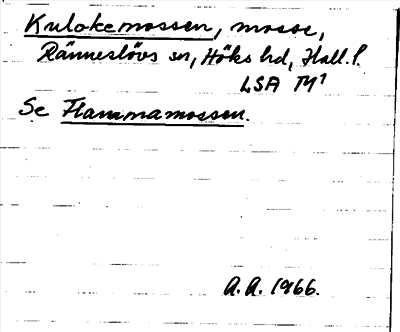 Kulokemossen, mosse,
Ränneslövs sn, Höks hd, Hall. l.
LSA M¹
Se Flammamossen.
A.A. 1966.